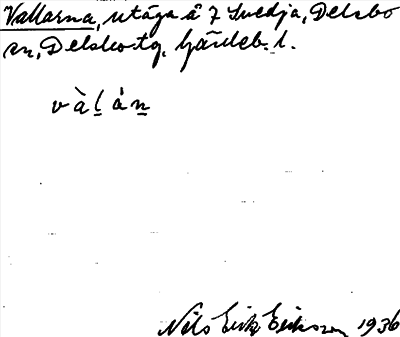 Vallarna, utäga å 7 Svedja, Delsbo
sn, Delsbo tg. Gärdeb. l.
v à l å n
Nils Erik Eriksson 1936